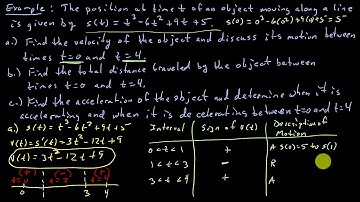 Example: The position at time t of an object moving along a line
is given by s(t)=t³-6t²+9t+5. s(0)=0³-6(0²)+9(0)+5=5
a.) Find the velocity of the object and discuss its motion between
times t=0 and t=4.
b.) Find the total distance traveled by the object between
times t=0 and t=4.
c.) Find the acceleration of the object and determine when it is
accelerating and when it is decelerating between t=0 and t=4
a) s(t)=t³-6t²+9t+5
v(t)=s'(t)=3t²-12t+9
v(t)=3t²-12t+9
(+) (-) (+)
0 1 3 4
Interval Sign of v(t) Description of Motion
0<t<1 + A s(0)=5 to s(1)
1<t<3 - R
3<t<4 + A